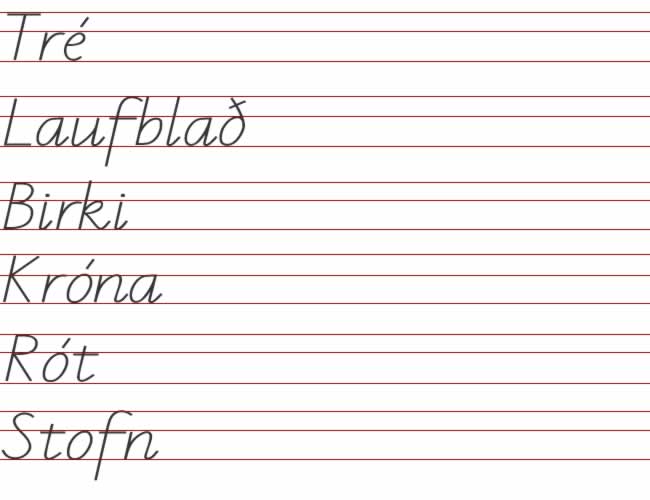 Tré
Laufblað
Birki
Króna
Rót
Stofn